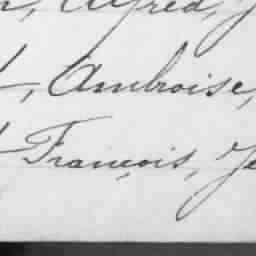 Alfred,
Ambroise,
François,